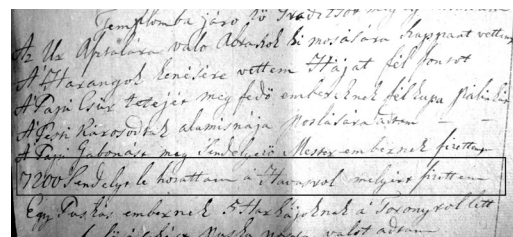 Templomba járo
Az Ur Asztalára valo Abraszok ki mosására Szappant vettem
A Harangok kenésire vettem Hájat fél fontot
A Papi Csür tetejét meg fedő embereknek fél Cupa Pálinkát
A Pesti Károsodtak alamisnája postására adtam
A Papi Gabonást meg Sendelyező Mester embernek fizettem
7200 Sendelyt le horattam a Havasrol melyért fizettem
Egy Puskás embernek 5 Harkájoknak a Toronyrol lett
puska porra valot adtam